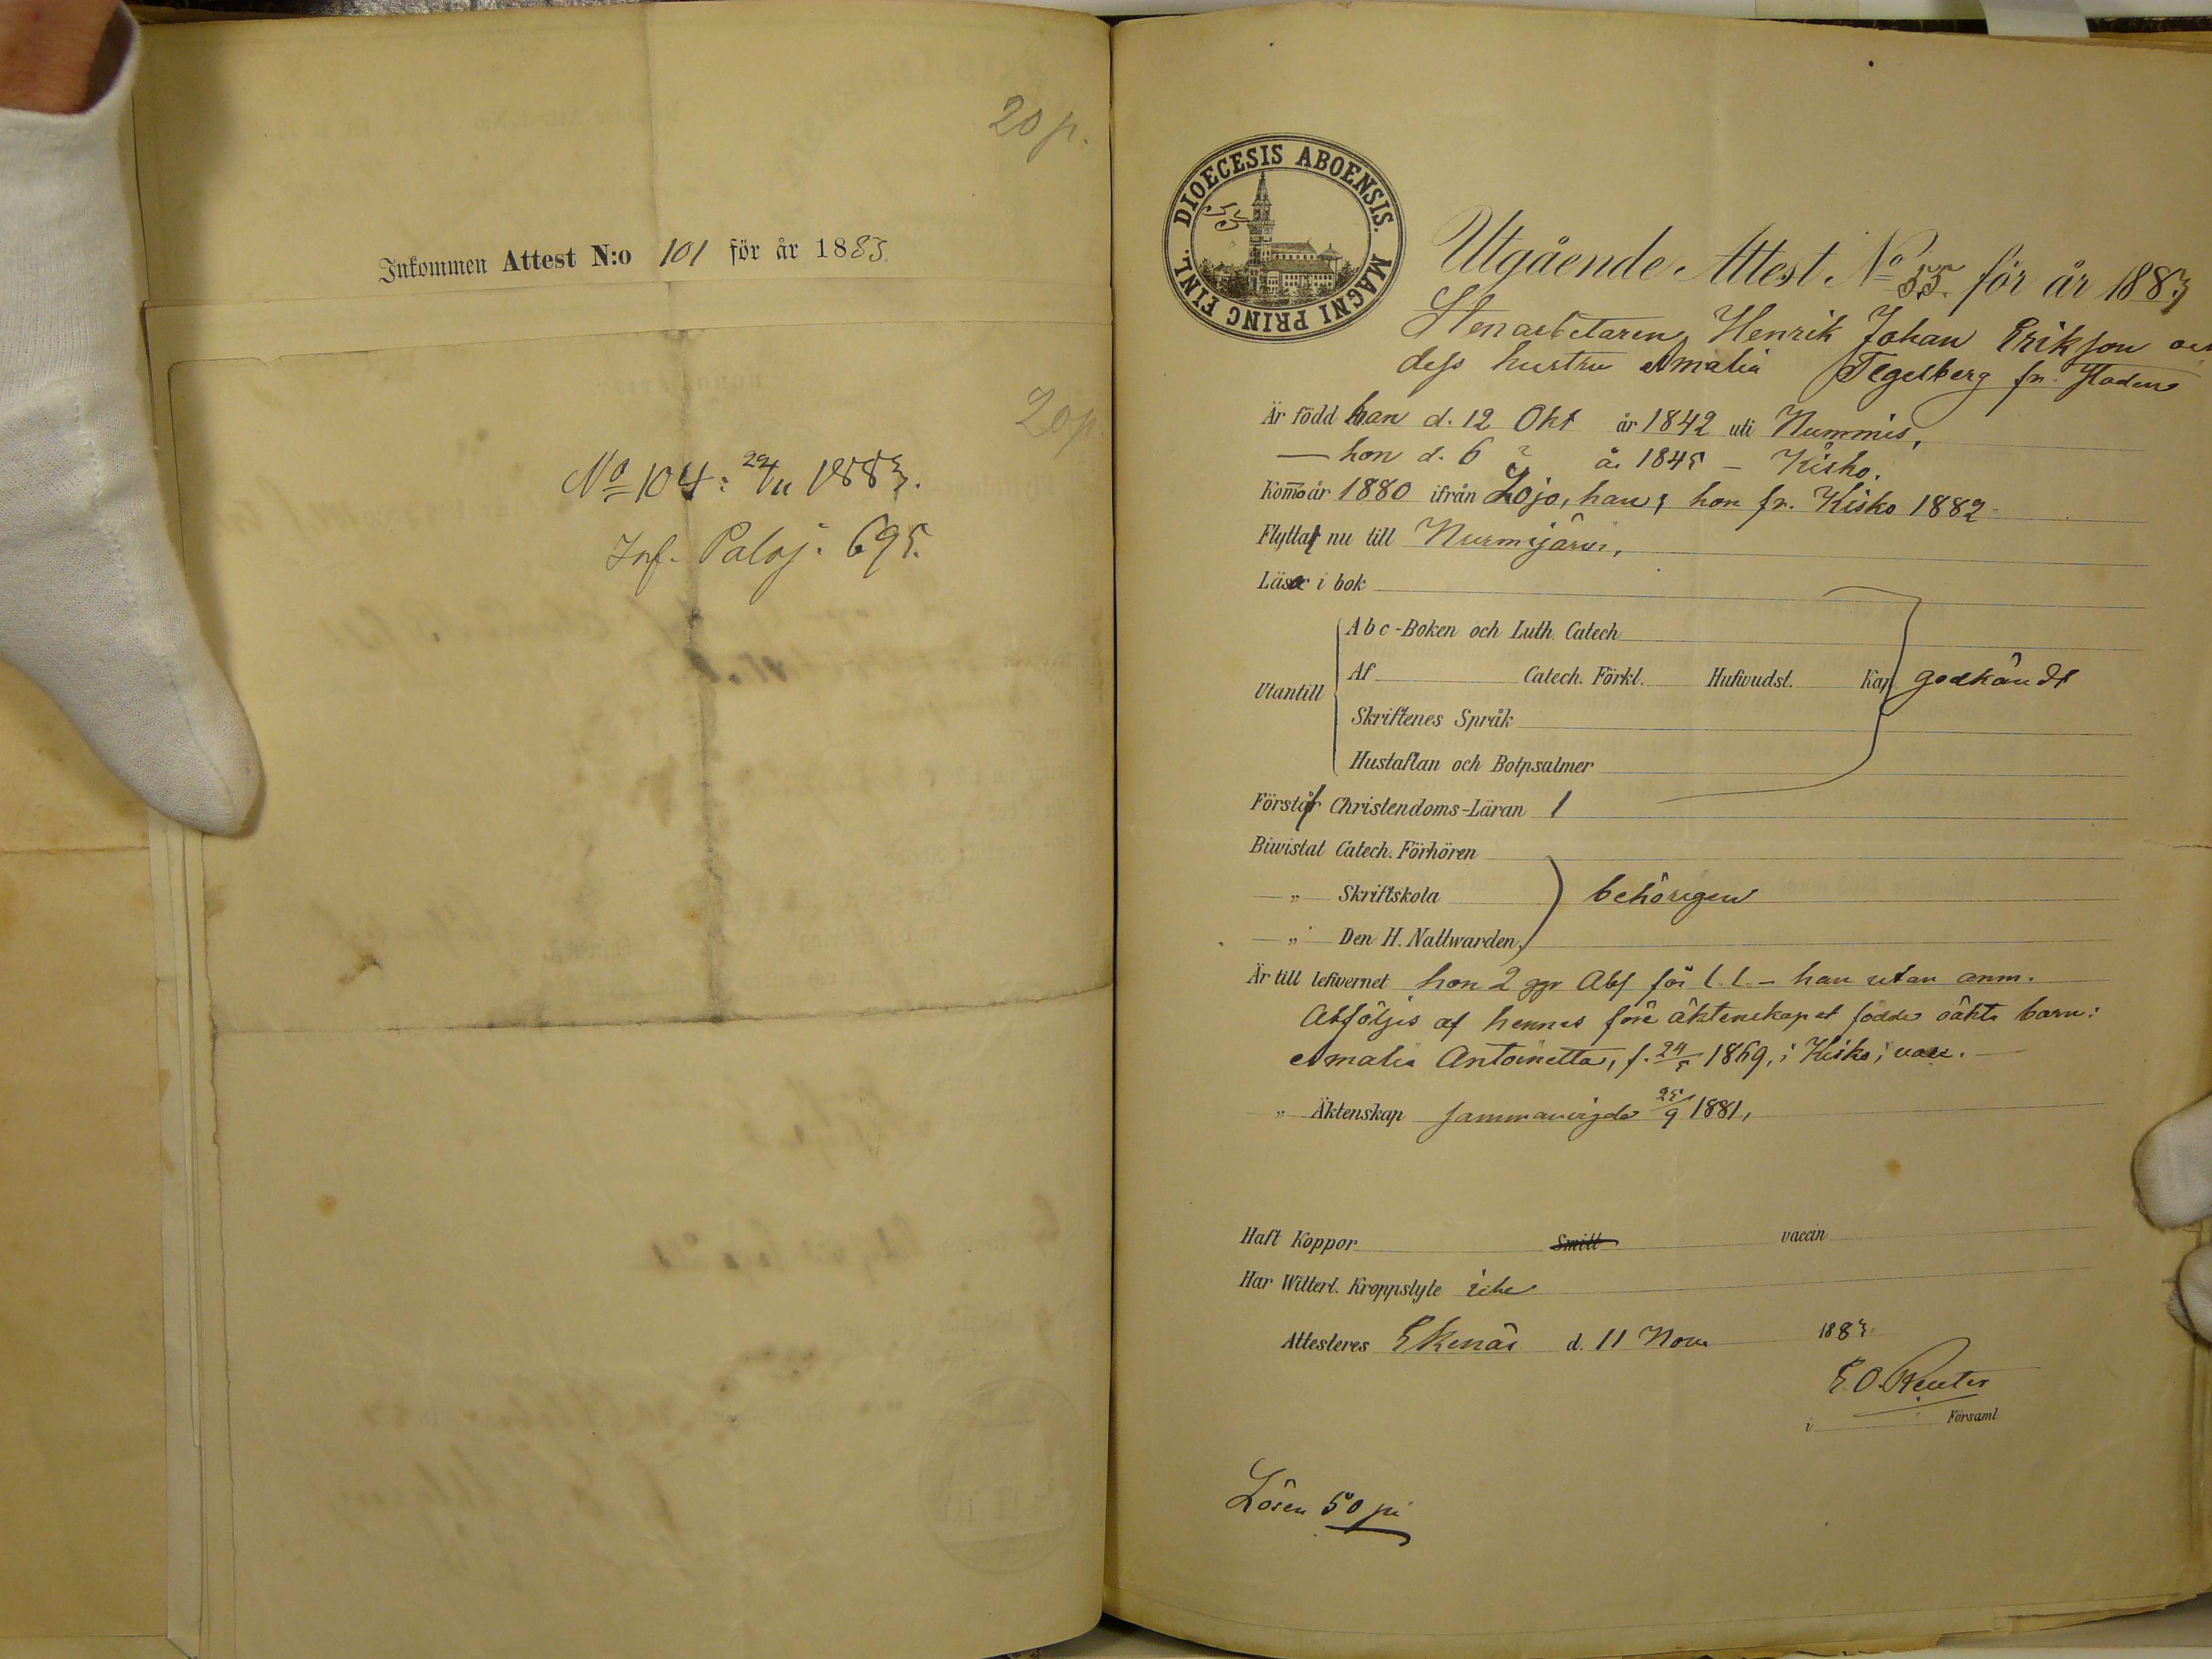 20 p.
Inkommen Attest N:o 101 för år 1883.
20 p.
No 104: 24/11 1883.
Inf. Paloj. 695.
DIOECESIS ABOENSIS. MAGNI PRINC FINL.
55
Utgående Attest No 55. för år 1883
Stenarbetaren Henrik Johan Erikson och
dess hustru Amalia Tegelberg fr. staden
Är född han d. 12 Okt år 1842 uti Nummis,
— hon d. 6 år 1845 — Kisko.
Kom̄o år 1880 ifrån Lojo, han; hon fr. Kisko 1882
Flytta nu till Nurmijärvi,
Läsa i bok
Abc-Boken och Luth. Catech
Utantill Af Catech. Förkl. Hufwudst. Kap. godkändt
Skriftenes Språk
Hustaflan och Botpsalmer
Förstå Christendoms-Läran 1
Biwistat Catech. Förhören
„ Skriftskola behörigen
„ Den H. Nattwarden
Är till lefwernet hon 2 ggr Abs för l. l. – han utan anm.
Åtföljes af hennes före äktenskapet födda oäkta barn:
Amalia Antoinetta, f. 24/5 1869, i Kisko; vacc.
„ Äktenskap sammanvigde 25/9 1881,
Haft Koppor Smitt vaccin
Har Witterl. Kroppslyte icke
Attesteres Ekenäs d. 11 Nov 1883
E. O. Reuter
i Församl.
Lösen 50 pi